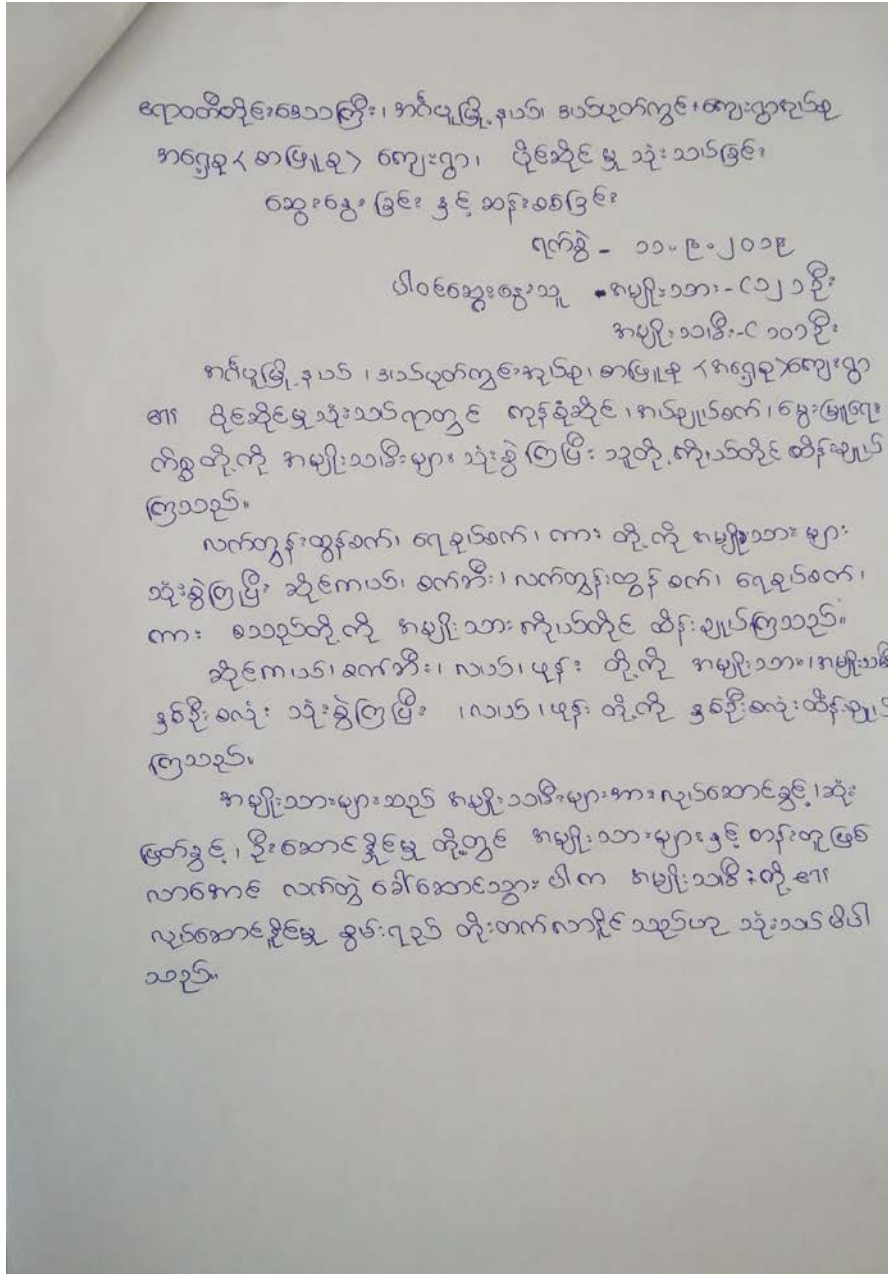 ဧရာဝတီတိုင်းဒေသကြီး၊ အင်္ဂပူမြို့နယ်၊ ဒယ်ပုတ်ကွင်းကျေးရွာအုပ်စု
အရှေ့စု < စာဖြူစု > ကျေးရွာ၊ ပိုင်ဆိုင်မှု သုံးသပ်ခြင်း
ဆွေးနွေးခြင်း နှင့် ဆန်းစစ်ခြင်း
ရက်စွဲ - ၁၁.၉.၂၀၁၉
ပါဝင်ဆွေးနွေးသူ - အမျိုးသား - (၁၂) ဦး
အမျိုးသမီး - (၁၀) ဦး
အင်္ဂပူမြို့နယ်၊ ဒယ်ပုတ်ကွင်းအုပ်စု၊ စာဖြူစု <အရှေ့စု> ကျေးရွာ
၏ ပိုင်ဆိုင်မှုသုံးသပ်ရာတွင် ကုန်စုံဆိုင်၊ အပ်ချုပ်စက်၊ မွေးမြူရေး
ကိစ္စတို့ကို အမျိုးသမီးများ သုံးစွဲကြပြီး သူတို့ကိုယ်တိုင် ထိန်းချုပ်
ကြသည်။
လက်တွန်းထွန်စက်၊ ရေစုပ်စက်၊ ကား တို့ကို အမျိုးသားများ
သုံးစွဲကြပြီး ဆိုင်ကယ်၊ စက်ဘီး၊ လက်တွန်းထွန်စက်၊ ရေစုပ်စက်၊
ကား စသည်တို့ကို အမျိုးသားကိုယ်တိုင် ထိန်းချုပ်ကြသည်။
ဆိုင်ကယ်၊ စက်ဘီး၊ လယ်၊ ဖုန်း တို့ကို အမျိုးသား၊ အမျိုးသမီး
နှစ်ဦးစလုံး သုံးစွဲကြပြီး ၊ လယ်၊ ဖုန်း တို့ကို နှစ်ဦးစလုံးထိန်းချုပ်
ကြသည်။
အမျိုးသားများသည် အမျိုးသမီးများအား လုပ်ဆောင်ခွင့်၊ ဆုံး
ဖြတ်ခွင့်၊ ဦးဆောင်နိုင်မှု တို့တွင် အမျိုးသားများနှင့် တန်းတူဖြစ်
လာအောင် လက်တွဲ ခေါ်ဆောင်သွားပါက အမျိုးသမီးတို့၏
လုပ်ဆောင်နိုင်မှု စွမ်းရည် တိုးတက်လာနိုင်သည်ဟု သုံးသပ်မိပါ
သည်။